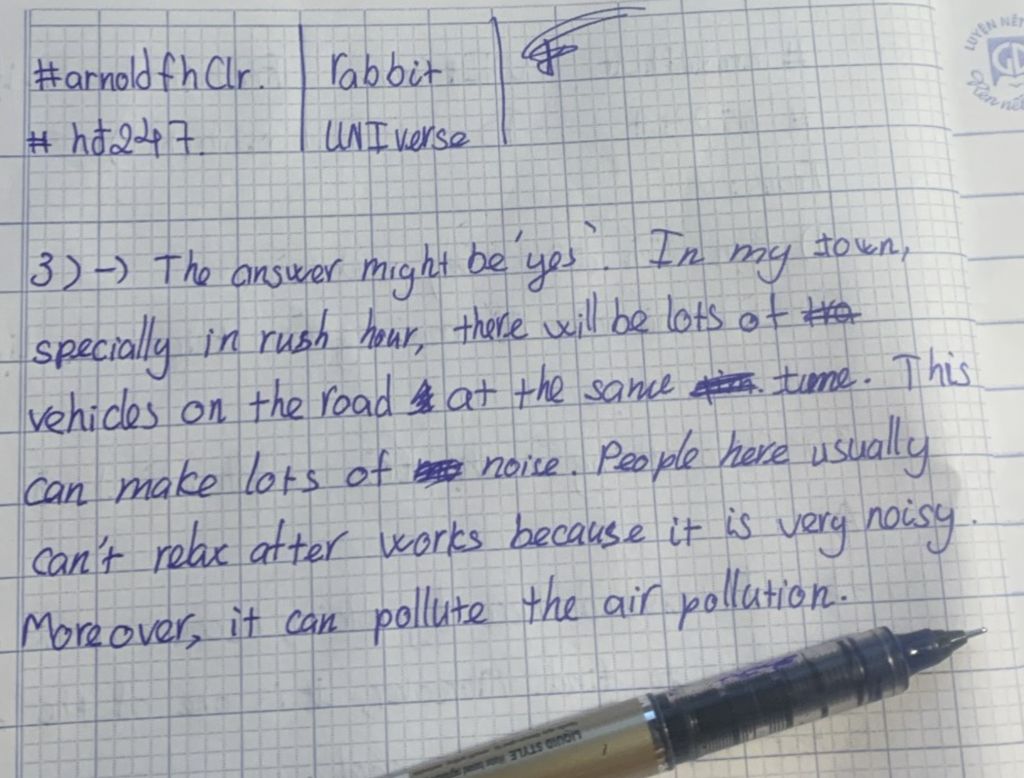 #arnoldfhClr. | rabbit.
# ht247. | UNIverse
3) → The answer might be 'yes'. In my town,
specially in rush hour, there will be lots of
vehicles on the road at the same time. This
can make lots of noise. People here usually
can't relax after works because it is very noisy.
Moreover, it can pollute the air pollution.
LUYỆN NÉT
GD
Rèn nết
LIQUID STYLE